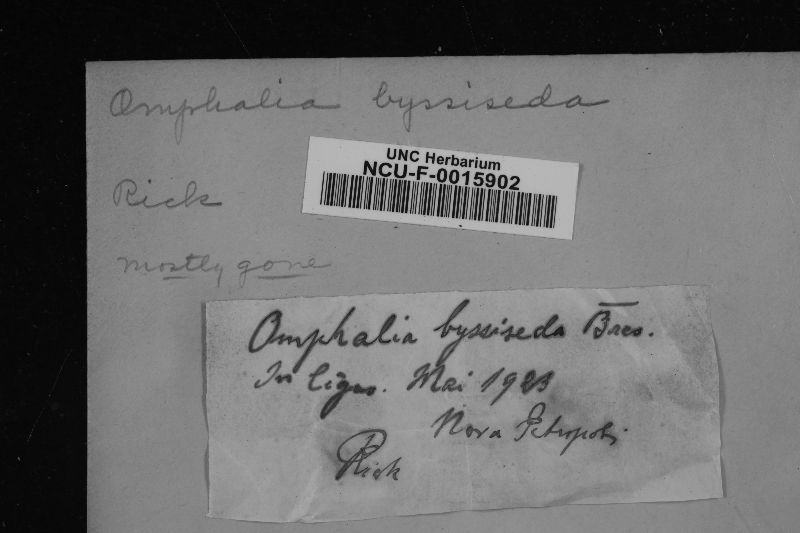 Omphalia byssiseda
UNC Herbarium
NCU-F-0015902
Rick
mostly gone
Omphalia byssiseda Bres.
In ligno. Mai 1923
Nova Petropolis
Rick